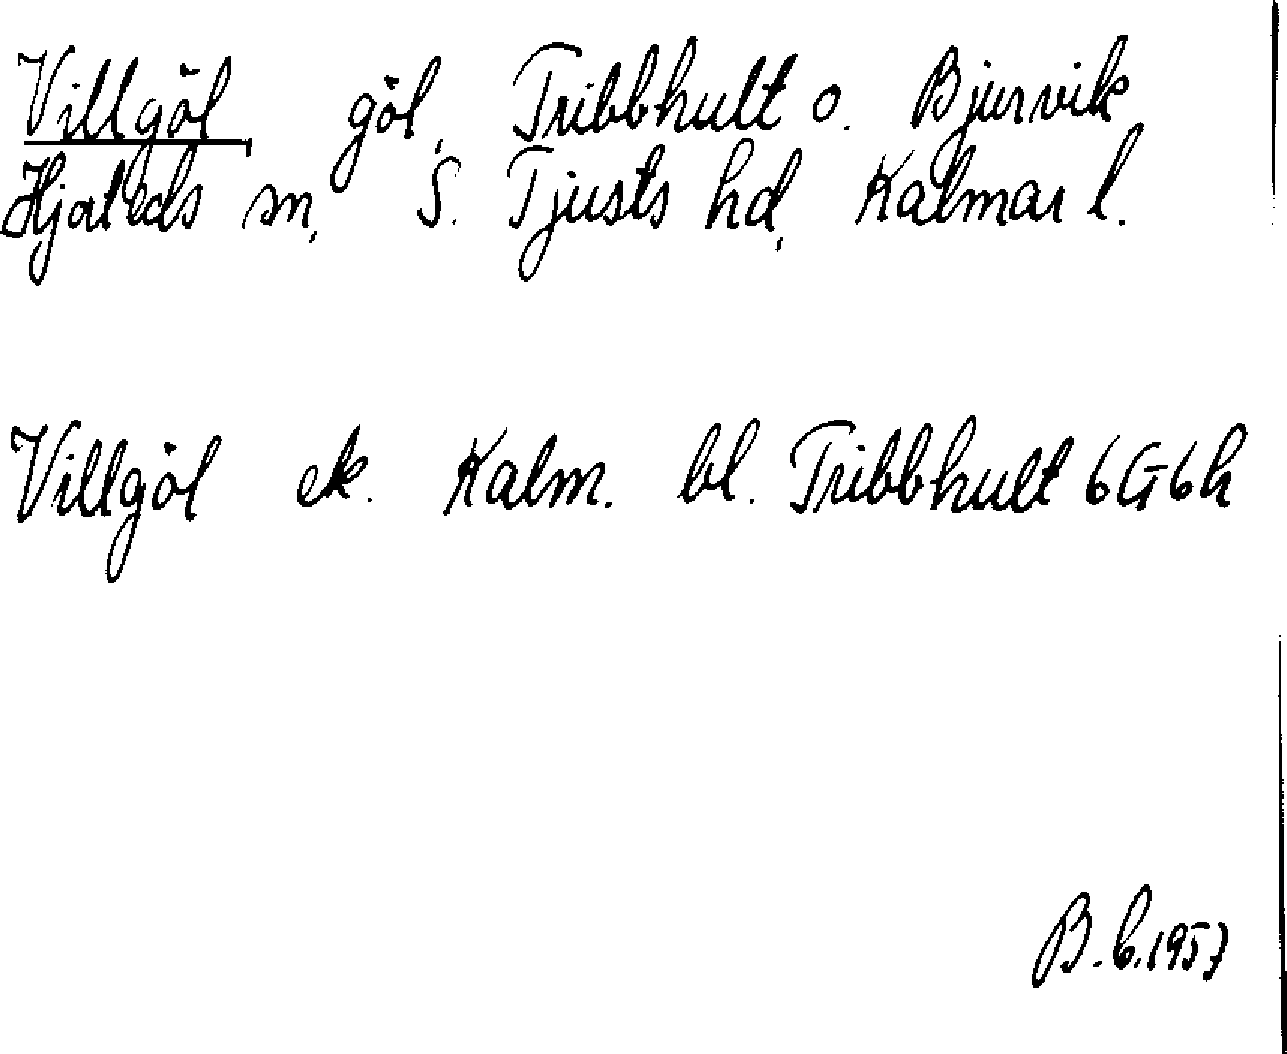 Villgöl, göl, Tribbhult o. Bjurvik
Hjorteds sn, S. Tjusts hd, Kalmar l.
Villgöl ek. Kalm. bl. Tribbhult 6G6h
B.b. 1957